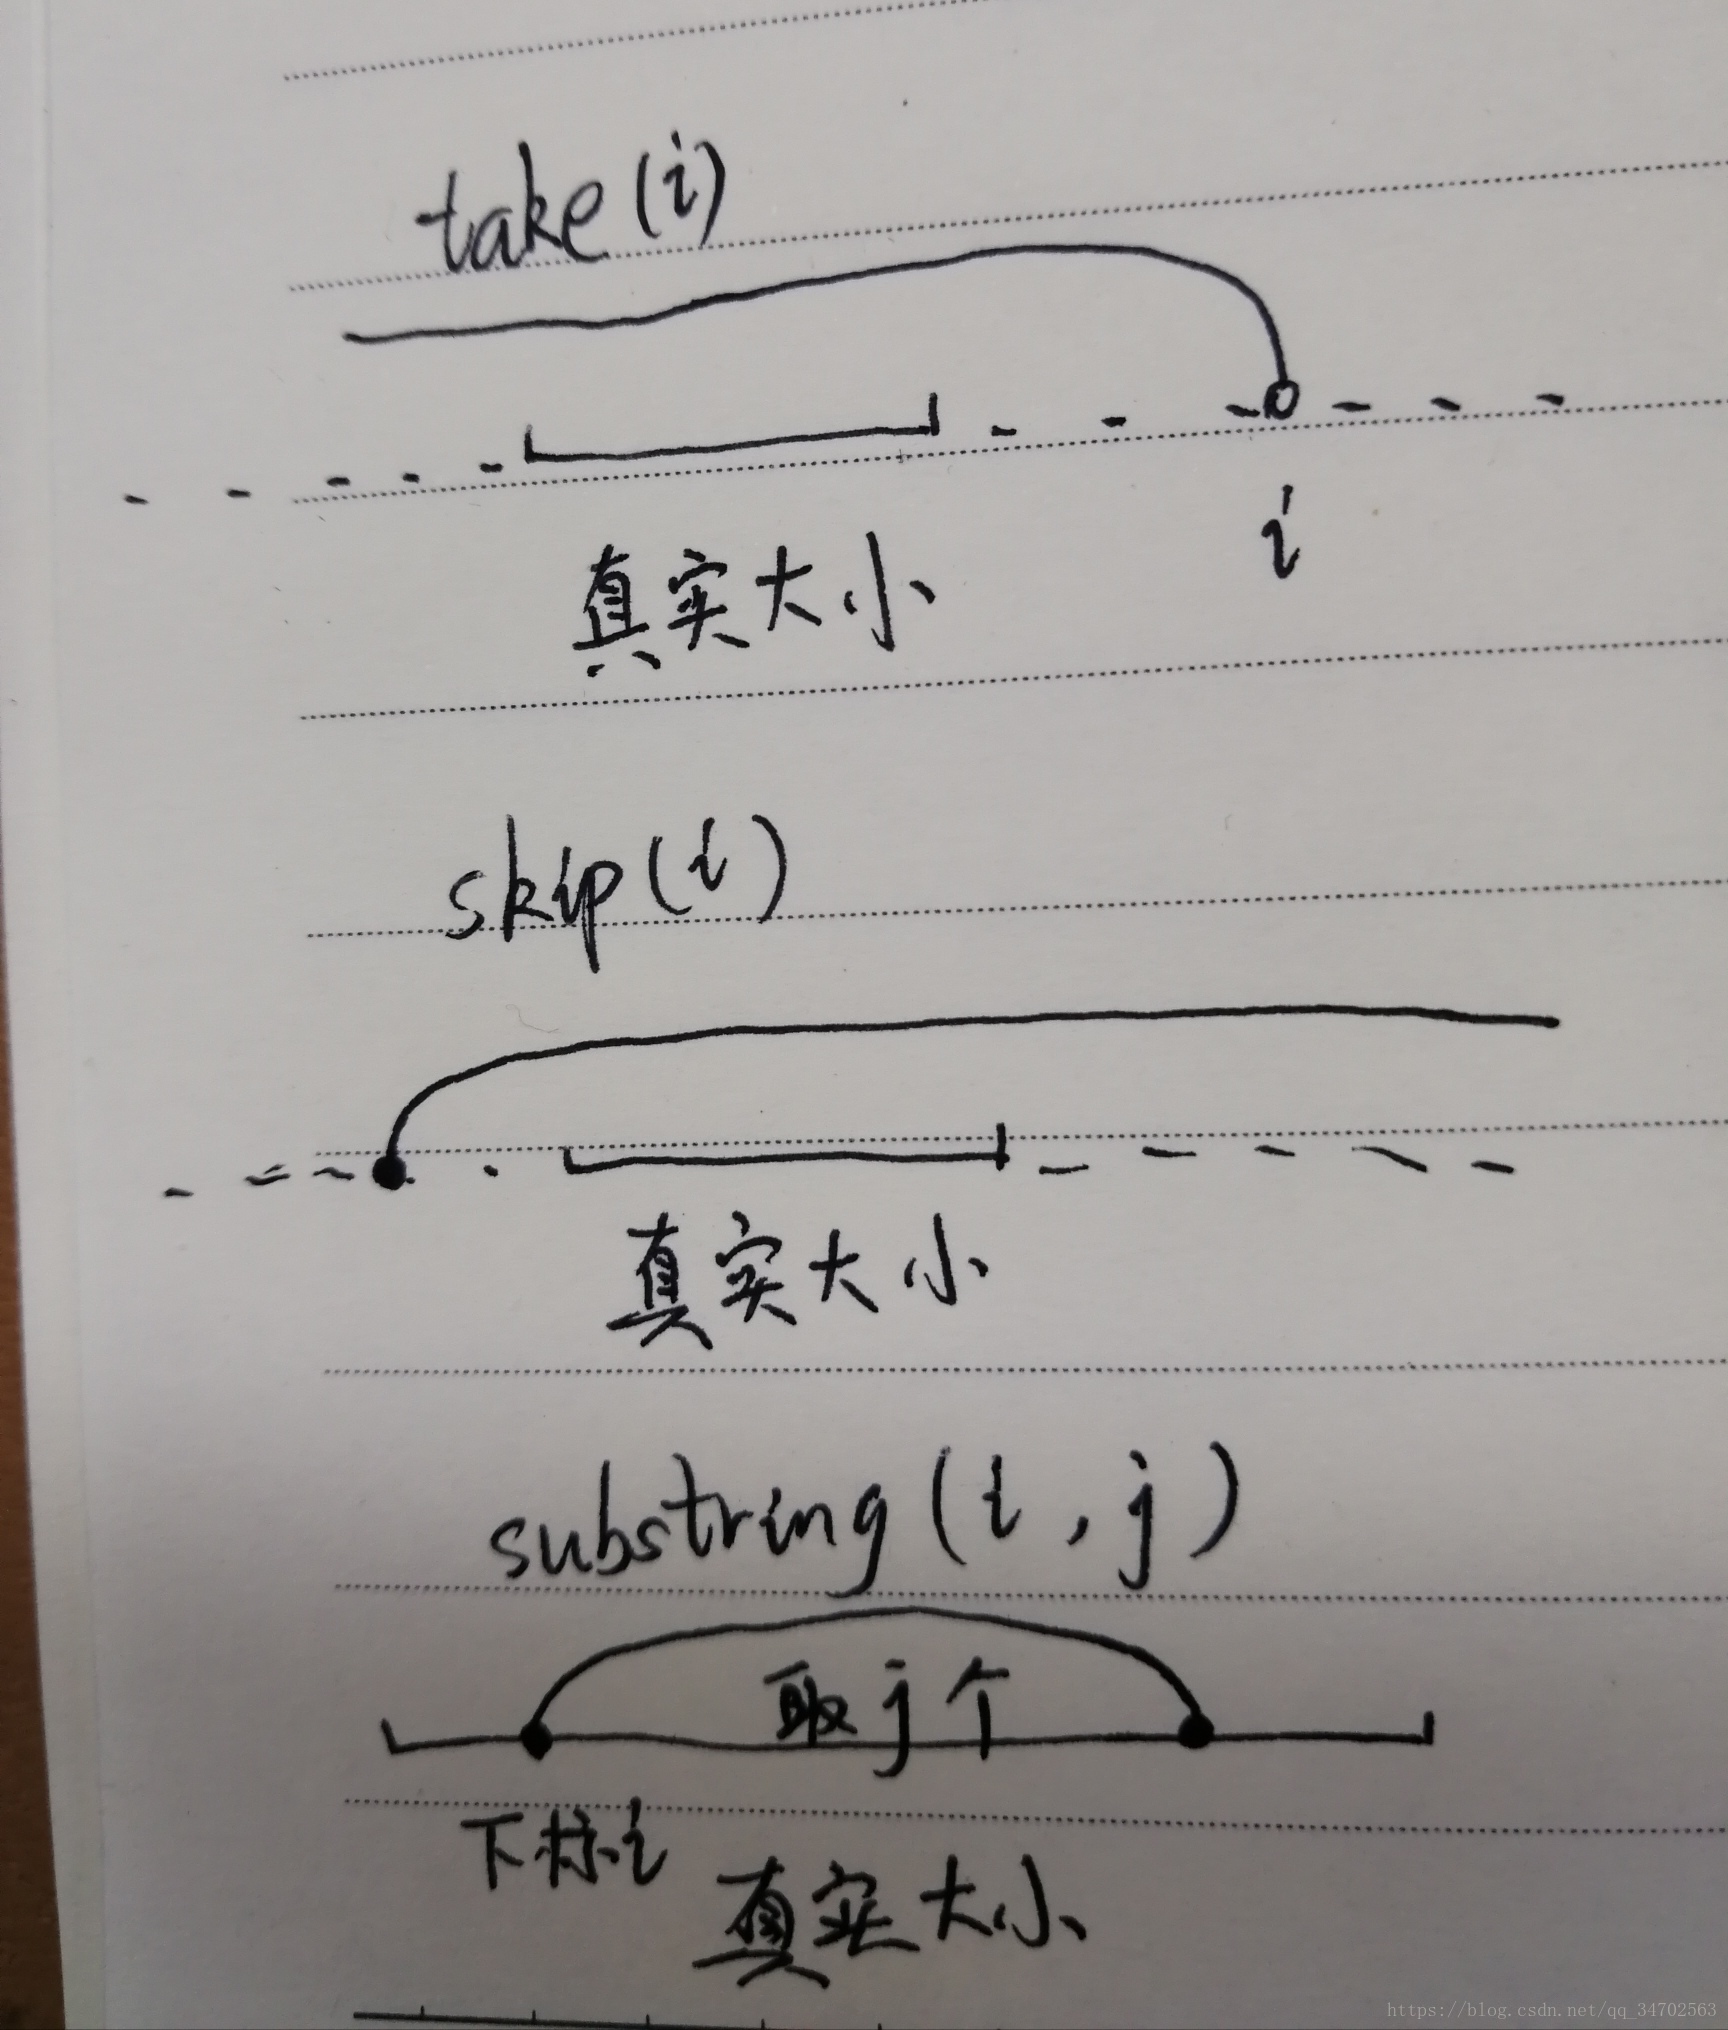 take(i)
i
真实大小
skip(i)
真实大小
substring(i,j)
取j个
下标i
真实大小
https://blog.csdn.net/qq_34702563